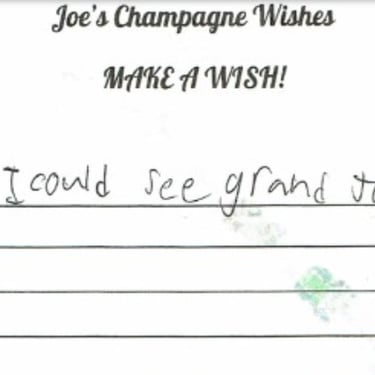 Joe's Champagne Wishes
MAKE A WISH!
I could see grand